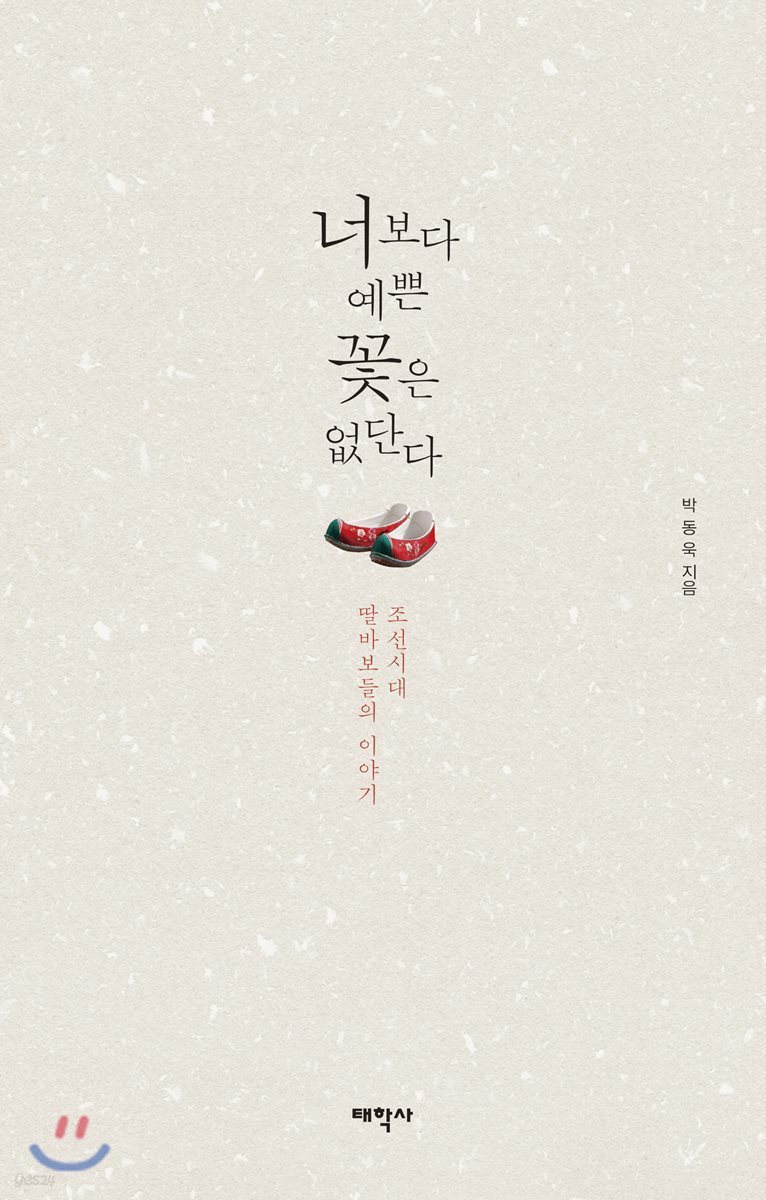 너보다
예쁜
꽃은
없단다
박동욱 지음
조선시대
딸바보들의 이야기
태학사
yes24